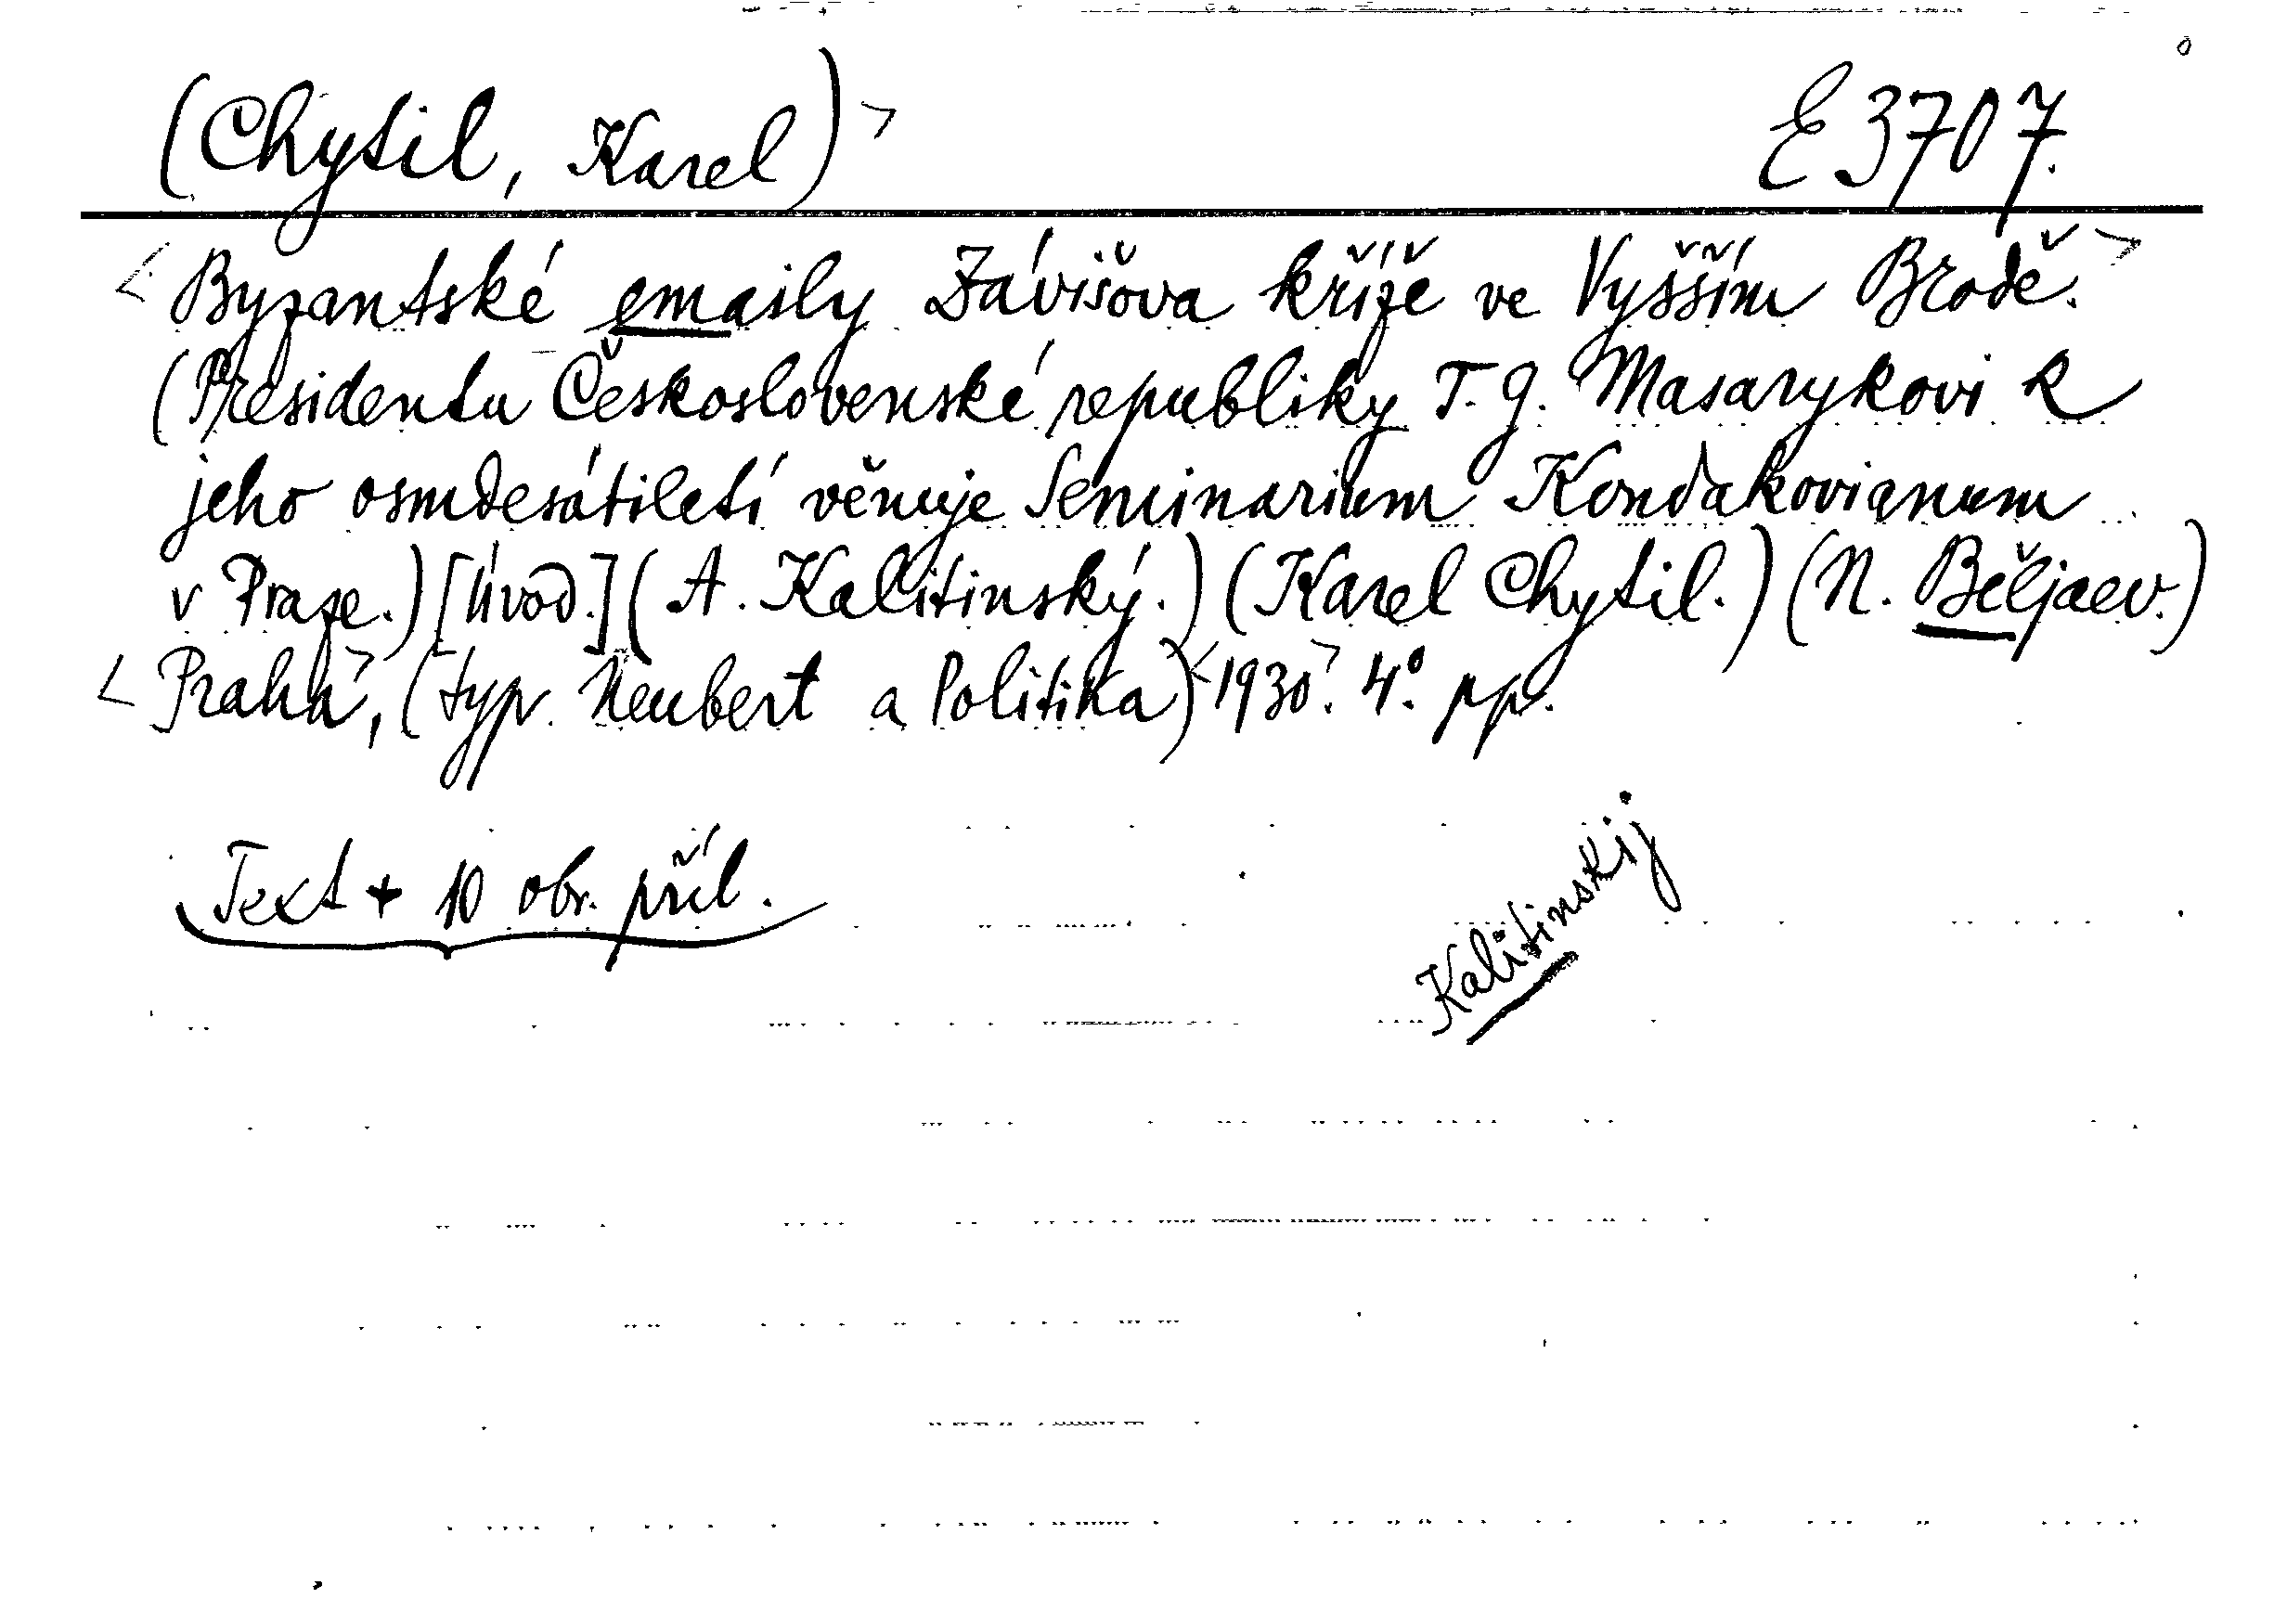 (Chytil, Karel)> E 3707.
<Byzantské emaily Závišova kříže ve Vyšším Brodě.>
(Presidentu Československé republiky T. G. Masarykovi k
jeho osmdesátiletí věnuje Seminarium Kondakovianum
v Praze.) [Úvod.] (A. Kalitinský.) (Karel Chytil.) (N. Běljaev.)
<Praha>, (typ. Neubert a Politika) <1930>. 4°. pp.
Text + 10 obr. příl.
Kalitinskij